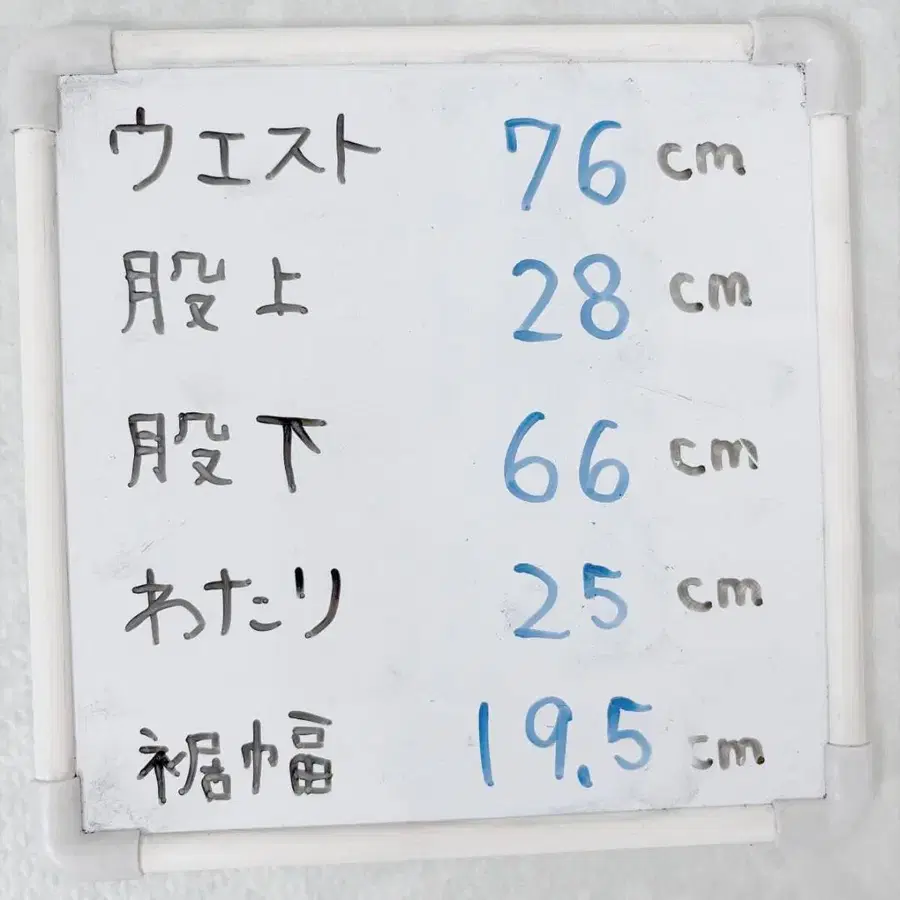 ウエスト 76 cm
股上 28 cm
股下 66 cm
わたり 25 cm
裾幅 19.5 cm